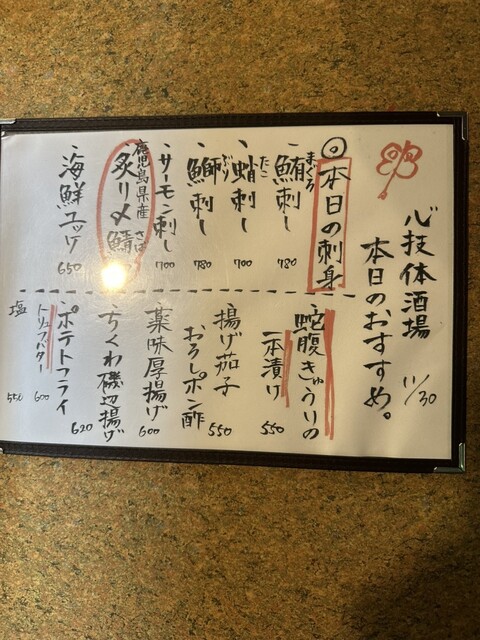 心技体酒場
本日のおすすめ。
11/30
本日の刺身
まぐろ
鮪刺し 780
たこ
蛸刺し 700
ぶり
鰤刺し 780
サーモン刺し 700
鹿児島県産
さば
炙り〆鯖
海鮮ユッケ 650
蛇腹きゅうりの
一本漬け 550
揚げ茄子
おろしポン酢 550
薬味厚揚げ 600
ちくわ磯辺揚げ 620
ポテトフライ
トリュフバター 600
塩 550